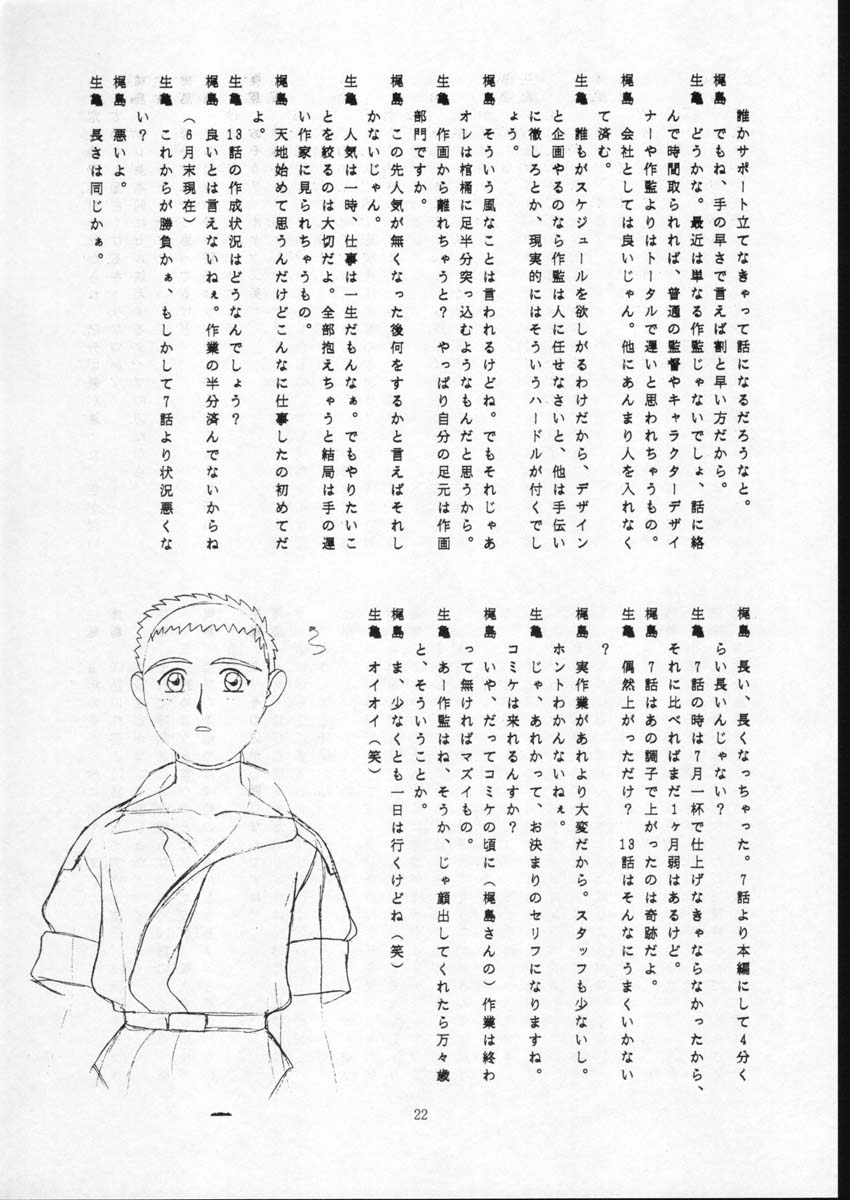 誰かサポート立てなきゃって話になるだろうなと。
梶島　でもね、手の早さで言えば割と早い方だから。
生亀　どうかな。最近は単なる作監じゃないでしょ、話に絡
んで時間取られれば、普通の監督やキャラクターデザイ
ナーや作監よりはトータルで遅いと思われちゃうもの。
梶島　会社としては良いじゃん。他にあんまり人を入れなく
て済む。
生亀　誰もがスケジュールを欲しがるわけだから、デザイン
と企画やるのなら作監は人に任せなさいと、他は手伝い
に徹しろとか、現実的にはそういうハードルが付くでし
ょう。
梶島　そういう風なことは言われるけどね。でもそれじゃあ
オレは棺桶に足半分突っ込むようなもんだと思うから。
生亀　作画から離れちゃうと？　やっぱり自分の足元は作画
部門ですか。
梶島　この先人気が無くなった後何をするかと言えばそれし
かないじゃん。
生亀　人気は一時、仕事は一生だもんなぁ。でもやりたいこ
とを絞るのは大切だよ。全部抱えちゃうと結局は手の遅
い作家に見られちゃうもの。
梶島　天地始めて思うんだけどこんなに仕事したの初めてだ
よ。
生亀　13話の作成状況はどうなんでしょう？
梶島　良いとは言えないねぇ。作業の半分済んでないからね
（6月末現在）
生亀　これからが勝負かぁ、もしかして7話より状況悪くな
い？
梶島　悪いよ。
生亀　長さは同じかぁ。
梶島　長い、長くなっちゃった。7話より本編にして4分く
らい長いんじゃない？
生亀　7話の時は7月一杯で仕上げなきゃならなかったから、
それに比べればまだ1ヶ月弱はあるけど。
梶島　7話はあの調子で上がったのは奇跡だよ。
生亀　偶然上がっただけ？　13話はそんなにうまくいかない
？
梶島　実作業があれより大変だから。スタッフも少ないし。
ホントわかんないねぇ。
生亀　じゃ、あれかって、お決まりのセリフになりますね。
コミケは来れるんすか？
梶島　いや、だってコミケの頃に（梶島さんの）作業は終わ
って無ければマズイもの。
生亀　あー作監はね、そうか、じゃ顔出してくれたら万々歳
と、そういうことか。
梶島　ま、少なくとも一日は行くけどね（笑）
生亀　オイオイ（笑）
22